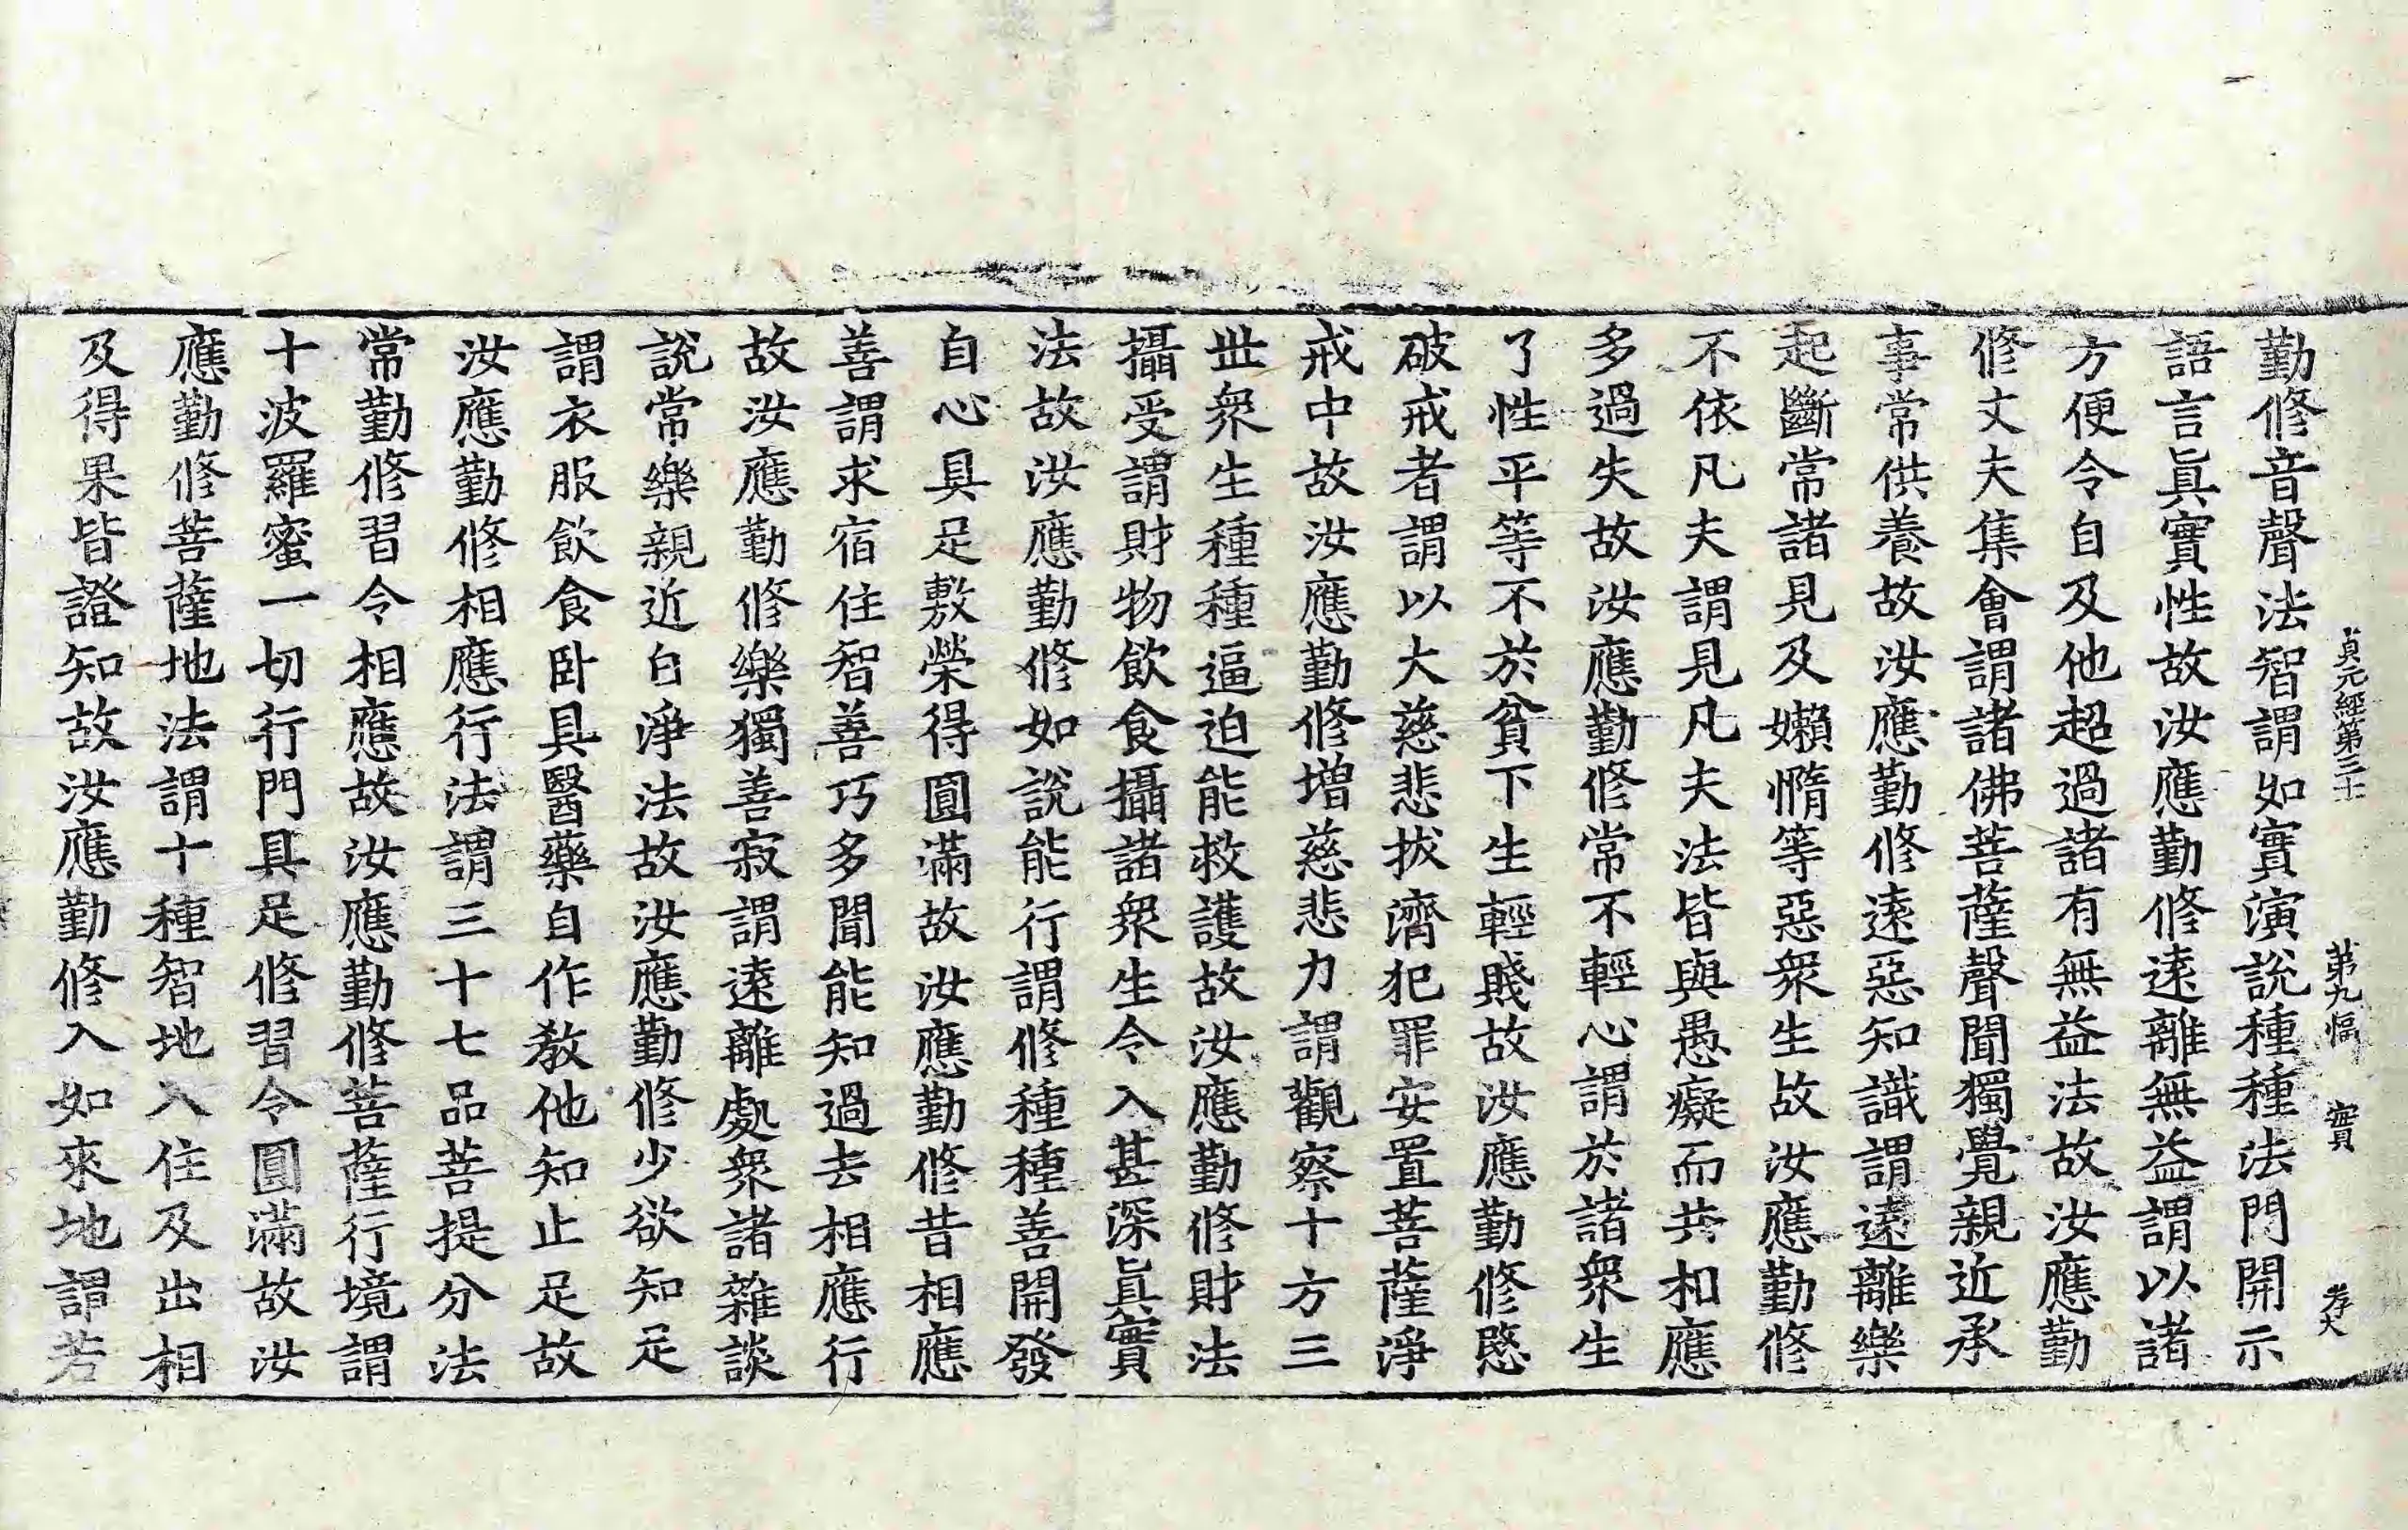 貞元經第三十 第九幅 實 孝大
勤修音聲法智謂如實演說種種法門開示
語言眞實性故汝應勤修遠離無益謂以諸
方便令自及他超過諸有無益法故汝應勤
修丈夫集會謂諸佛菩薩聲聞獨覺親近承
事常供養故汝應勤修遠惡知識謂遠離樂
起斷常諸見及嬾惰等惡衆生故汝應勤修
不依凡夫謂見凡夫法皆與愚癡而共相應
多過失故汝應勤修常不輕心謂於諸衆生
了性平等不於貧下生輕賤故汝應勤修愍
破戒者謂以大慈悲拔濟犯罪安置菩薩淨
戒中故汝應勤修增慈悲力謂觀察十方三
世衆生種種逼迫能救護故汝應勤修財法
攝受謂財物飲食攝諸衆生令入甚深眞實
法故汝應勤修如說能行謂修種種善開發
自心具足敷榮得圓滿故汝應勤修昔相應
善謂求宿住智善巧多聞能知過去相應行
故汝應勤修樂獨善寂謂遠離處衆諸雜談
說常樂親近白淨法故汝應勤修少欲知足
謂衣服飲食卧具醫藥自作教他知止足故
汝應勤修相應行法謂三十七品菩提分法
常勤修習令相應故汝應勤修菩薩行境謂
十波羅蜜一切行門具足修習令圓滿故汝
應勤修菩薩地法謂十種智地入住及出相
及得果皆證知故汝應勤修入如來地謂若